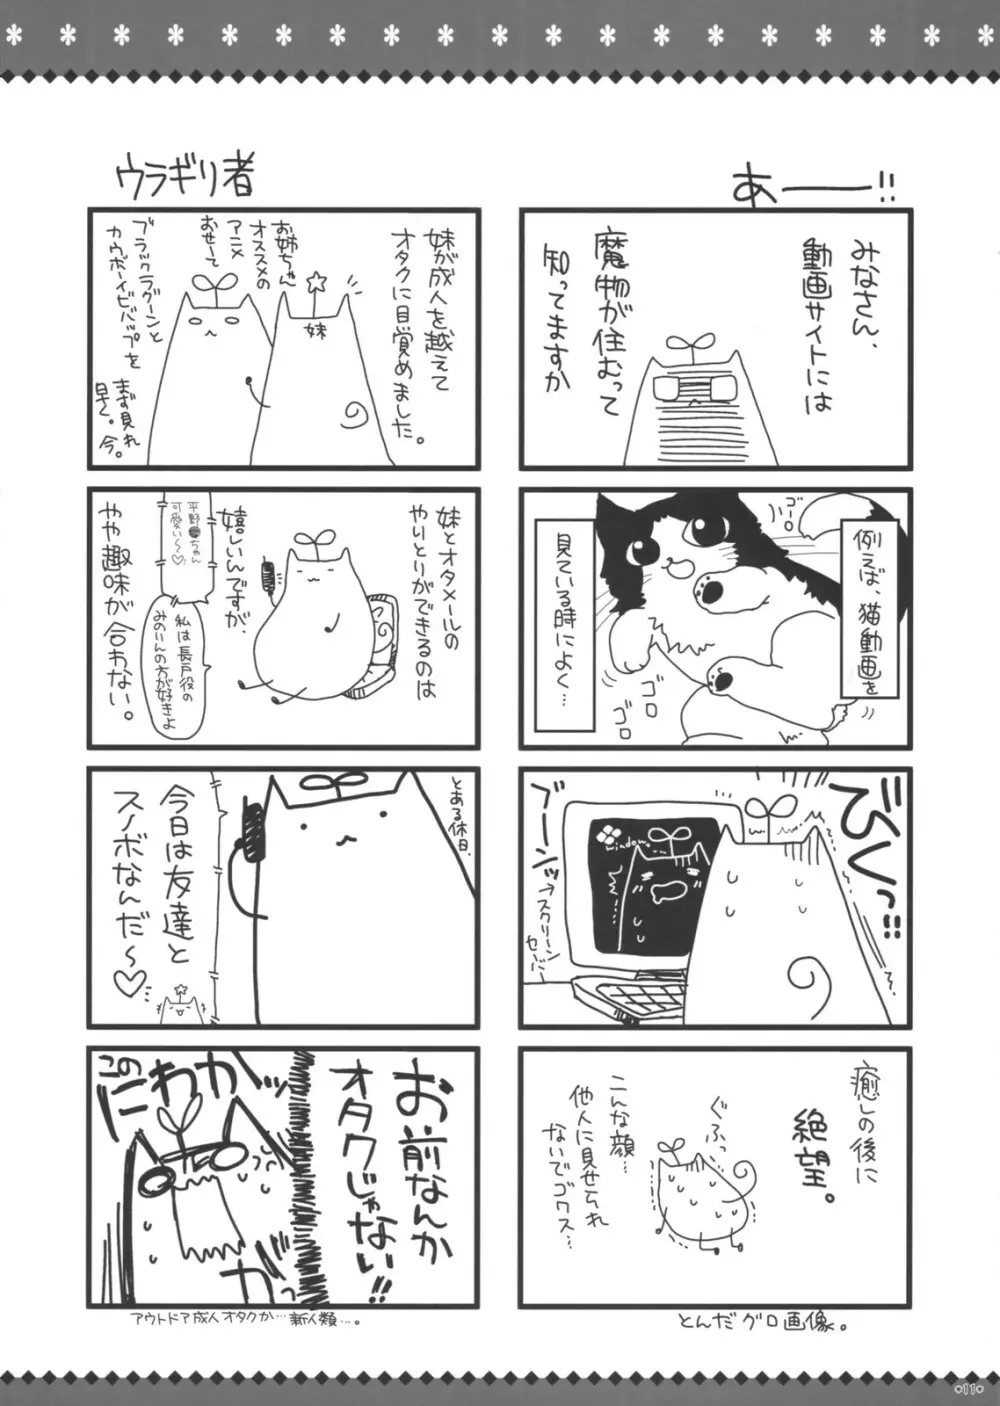 あーーー!!
みなさん、
動画サイトには
魔物が住むって
知ってますか
例えば、猫動画を
見ている時によく…
ゴーロ
ゴロ
ゴロ
びくっ!!
ブーンッ
→スクリーン
セーバー
windows
癒しの後に
絶望。
ぐふっ
こんな顔…
他人に見せられ
ないでゴワス…
とんだグロ画像。
ウラギリ者
妹が成人を越えて
オタクに目覚めました。
お姉ちゃん
オススメの
アニメ
おせーて
妹
ブラックラグーンと
カウボーイビバップを
まず見れ
早く。今。
妹とオタメールの
やりとりができるのは
嬉しいんですが、
平野●ちゃん
可愛い〜♡!
私は長戸役の
みのりんの方が好きよ
やや趣味が合わない。
とある休日、
今日は友達と
スノボなんだ〜♡…
お前なんか
オタクじゃない!!
この
にわかッ
がっ
アウトドア成人オタクか…新人類…。
011